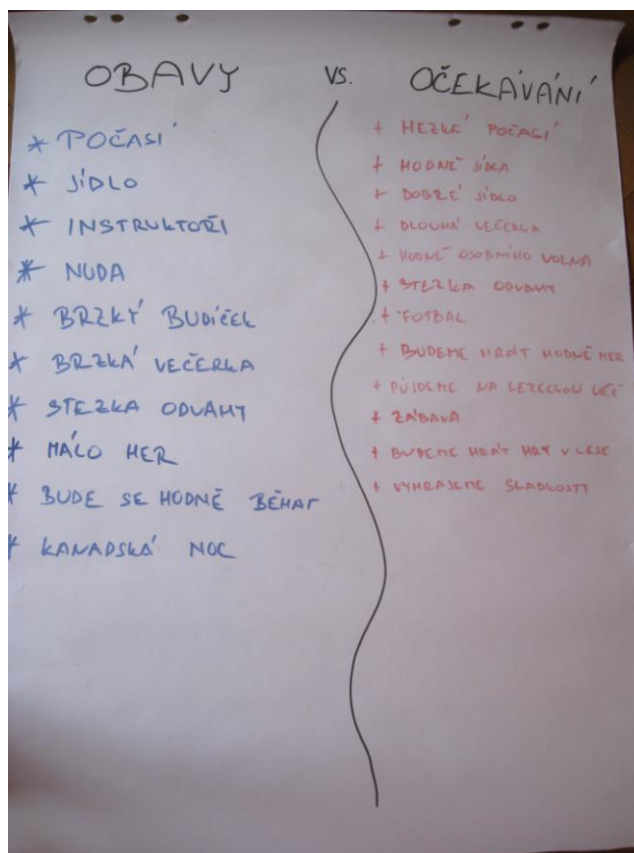 OBAVY VS. OČEKÁVÁNÍ
* POČASÍ
* JÍDLO
* INSTRUKTOŘI
* NUDA
* BRZKÝ BUDÍČEK
* BRZKÁ VEČERKA
* STEZKA ODVAHY
* MÁLO HER
* BUDE SE HODNĚ BĚHAT
* KANADSKÁ NOC
+ HEZKÉ POČASÍ
+ HODNĚ JÍDLA
+ DOBRÉ JÍDLO
+ DLOUHÁ VEČERKA
+ HODNĚ OSOBNÍHO VOLNA
+ STEZKA ODVAHY
+ FOTBAL
+ BUDEME HRÁT HODNĚ HER
+ PŮJDEME NA LEZECKOU VĚŽ
+ ZÁBAVA
+ BUDEME HRÁT HRY V LESE
+ VYHRAJEME SLADKOSTI